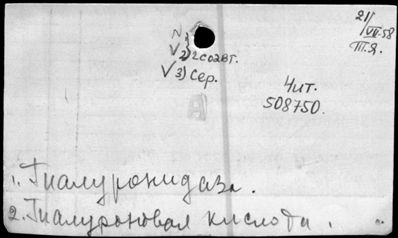 21/VII-58
Т.Я.
2) 2 соавт.
V 3) Сер.
Чит.
508750.
1. Гиалуронидаза.
2. Гиалуроновая кислота.